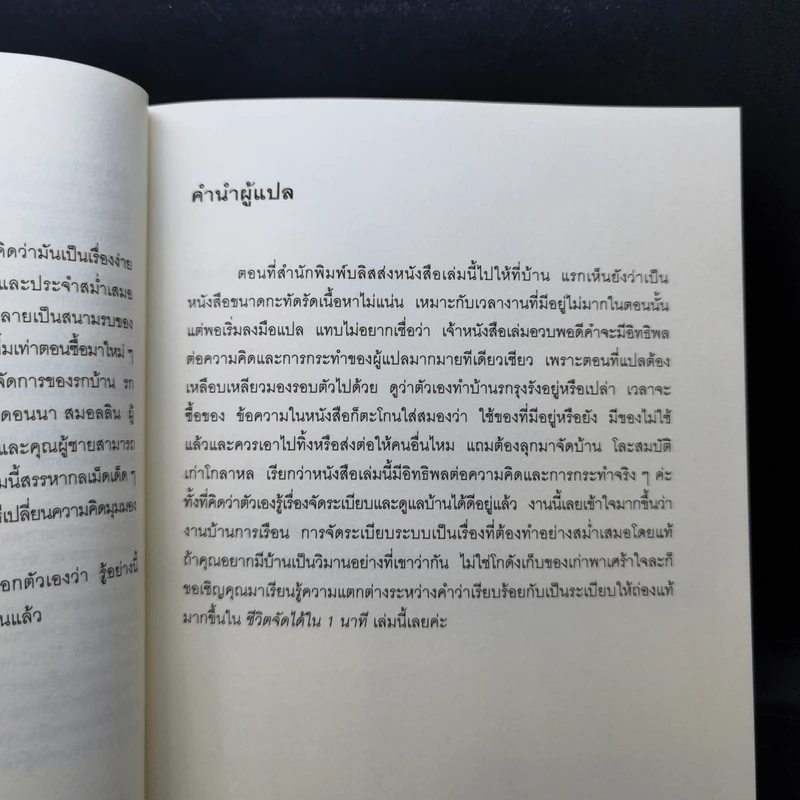 คิดว่ามันเป็นเรื่องง่าย
และประจำสม่ำเสมอ
ลายเป็นสนามรบของ
เท่าตอนซื้อมาใหม่ ๆ
จัดการของรกบ้าน รก
ดอนนา สมอลลิน ผู้
และคุณผู้ชายสามารถ
มนี้สรรหากลเม็ดเด็ด ๆ
เปลี่ยนความคิดมุมมอง
อกตัวเองว่า รู้อย่างนี้
นแล้ว
คำนำผู้แปล
ตอนที่สำนักพิมพ์บลิสส่งหนังสือเล่มนี้ไปให้ที่บ้าน แรกเห็นยังว่าเป็น
หนังสือขนาดกะทัดรัดเนื้อหาไม่แน่น เหมาะกับเวลางานที่มีอยู่ไม่มากในตอนนั้น
แต่พอเริ่มลงมือแปล แทบไม่อยากเชื่อว่า เจ้าหนังสือเล่มอวบพอดีคำจะมีอิทธิพล
ต่อความคิดและการกระทำของผู้แปลมากมายทีเดียวเชียว เพราะตอนที่แปลต้อง
เหลือบเหลียวมองรอบตัวไปด้วย ดูว่าตัวเองทำบ้านรกรุงรังอยู่หรือเปล่า เวลาจะ
ซื้อของ ข้อความในหนังสือก็ตะโกนใส่สมองว่า ใช้ของที่มีอยู่หรือยัง มีของไม่ใช้
แล้วและควรเอาไปทิ้งหรือส่งต่อให้คนอื่นไหม แถมต้องลุกมาจัดบ้าน โละสมบัติ
เก่าโกลาหล เรียกว่าหนังสือเล่มนี้มีอิทธิพลต่อความคิดและการกระทำจริง ๆ ค่ะ
ทั้งที่คิดว่าตัวเองรู้เรื่องจัดระเบียบและดูแลบ้านได้ดีอยู่แล้ว งานนี้เลยเข้าใจมากขึ้นว่า
งานบ้านการเรือน การจัดระเบียบระบบเป็นเรื่องที่ต้องทำอย่างสม่ำเสมอโดยแท้
ถ้าคุณอยากมีบ้านเป็นวิมานอย่างที่เขาว่ากัน ไม่ใช่โกดังเก็บของเก่าพาเศร้าใจละก็
ขอเชิญคุณมาเรียนรู้ความแตกต่างระหว่างคำว่าเรียบร้อยกับเป็นระเบียบให้ถ่องแท้
มากขึ้นใน ชีวิตจัดได้ใน 1 นาที เล่มนี้เลยค่ะ